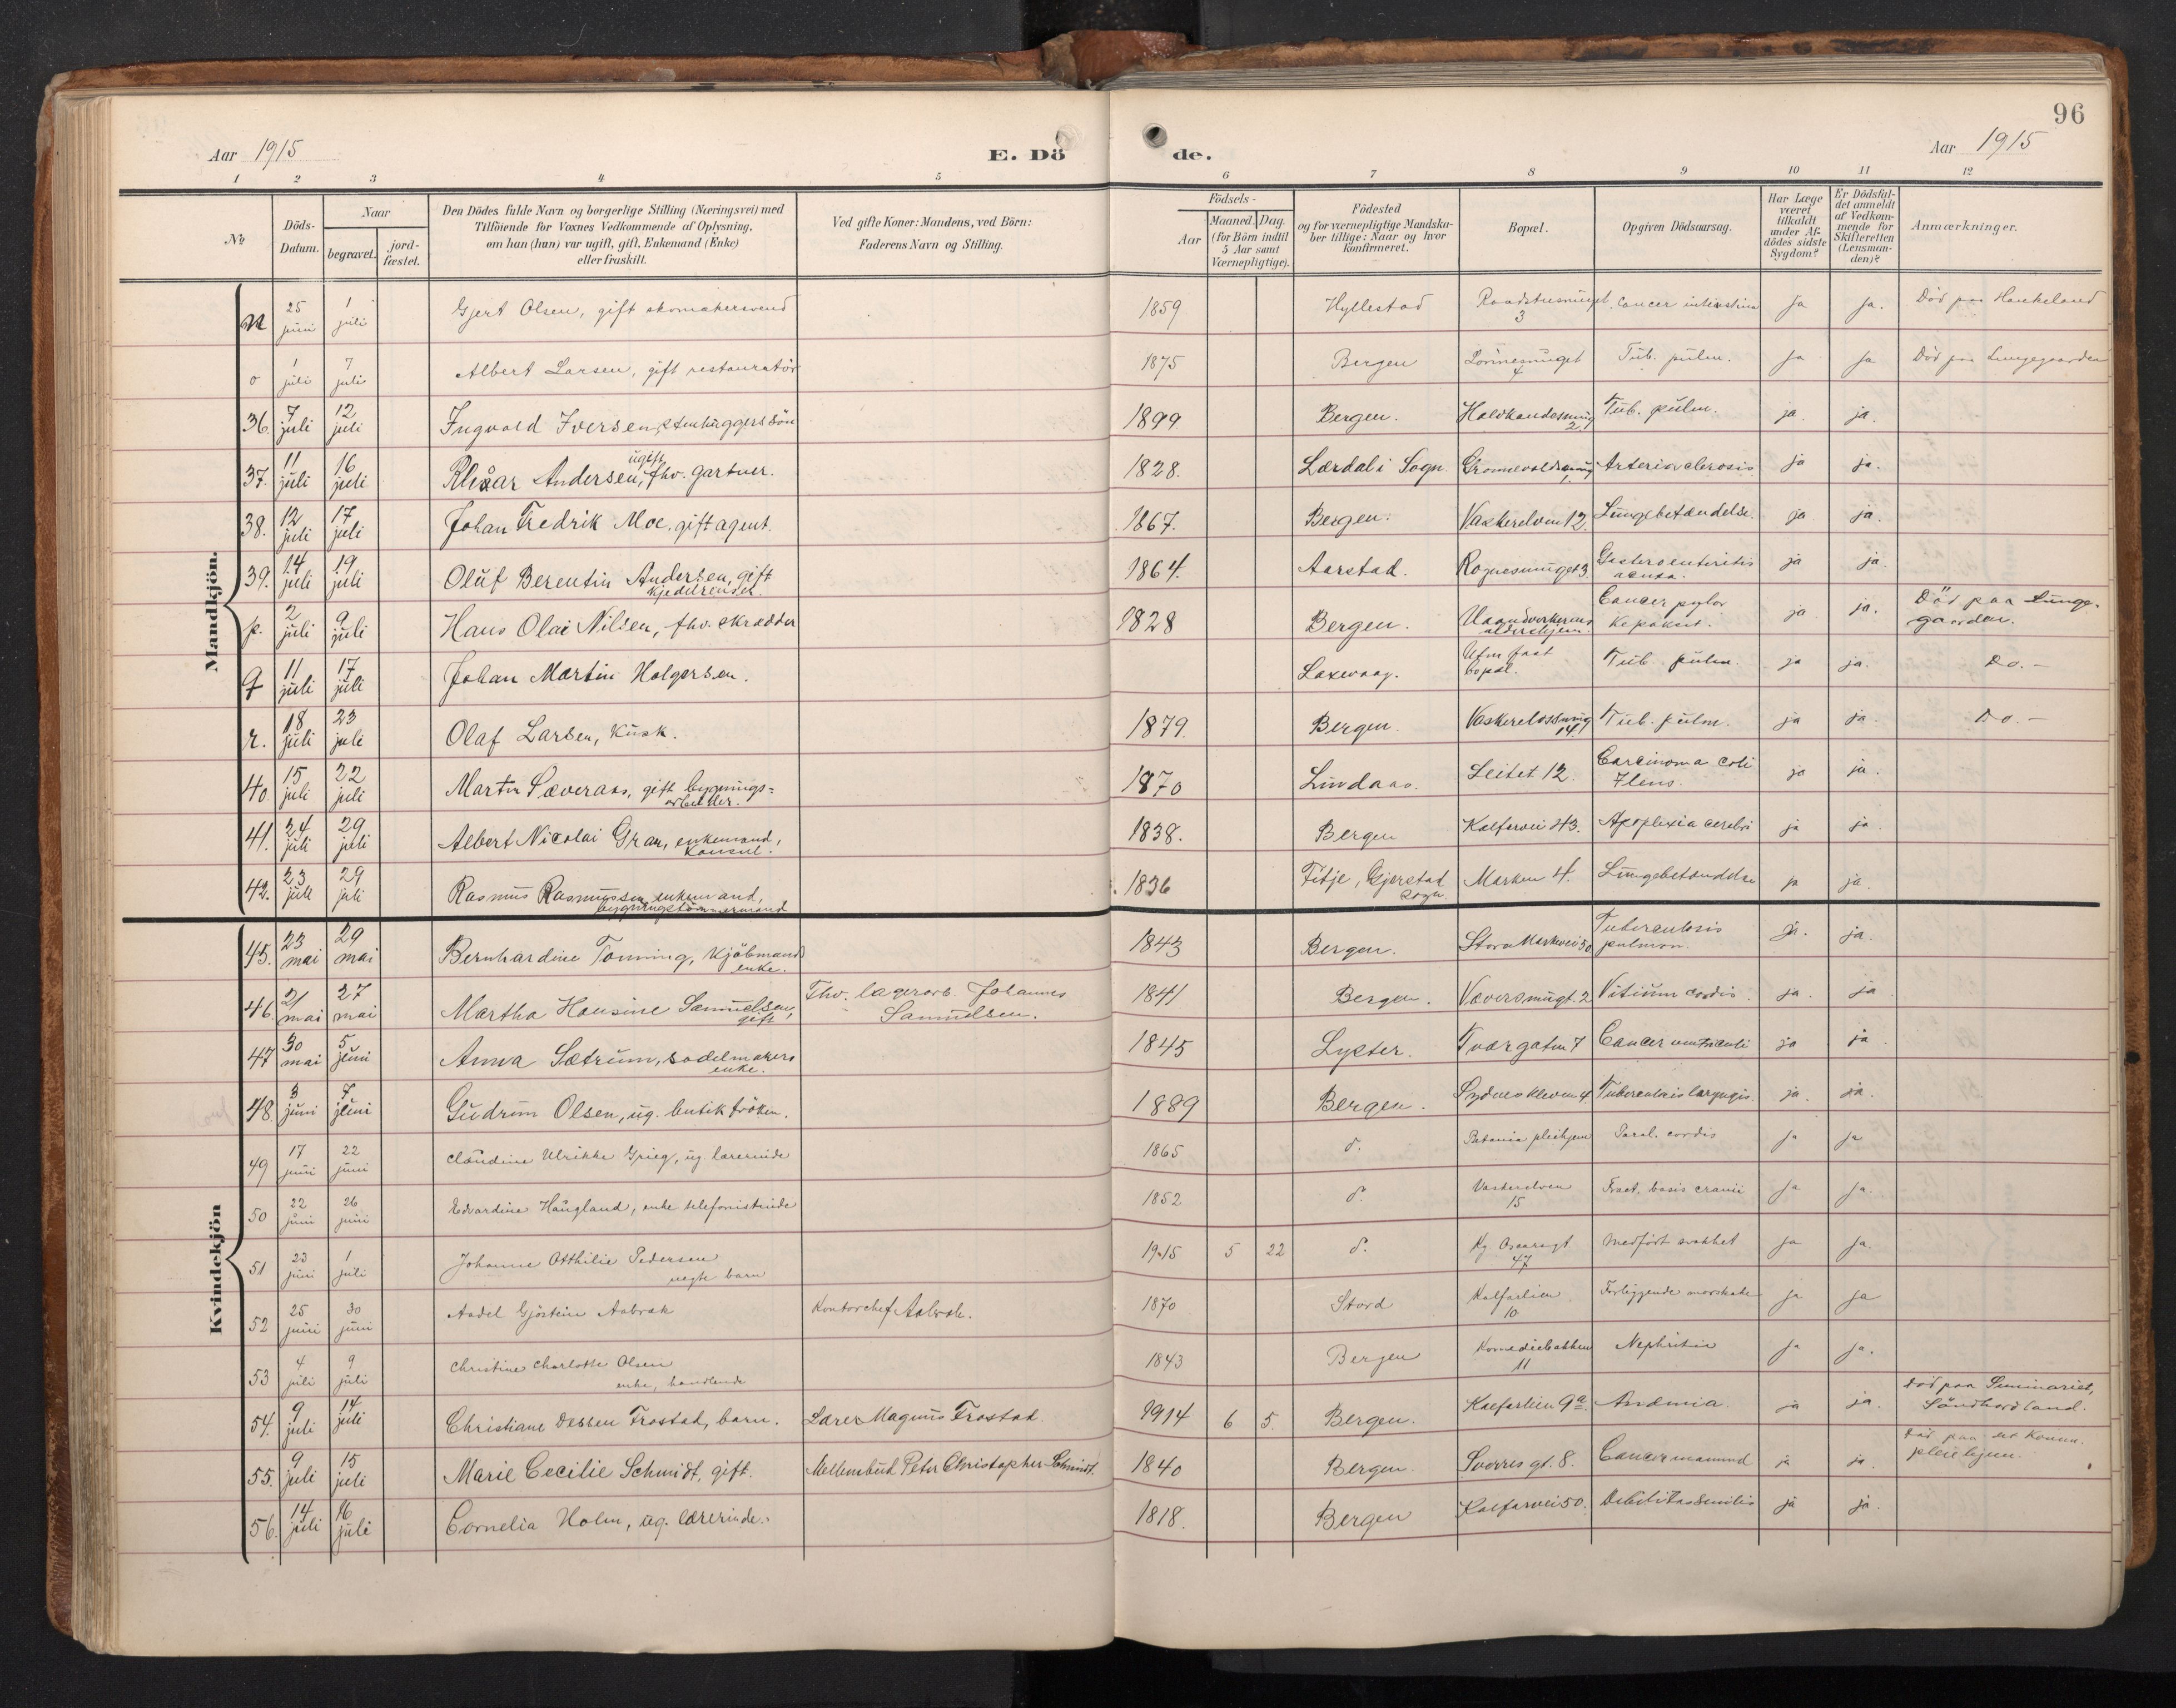 96
Aar 1915
E. Dö
de.
Aar 1915
1 2 3 4 5 6 7 8 9 10 11 12
No
Döds-
Datum.
Naar
begravet.
jord-
fæstet.
Den Dödes fulde Navn og borgerlige Stilling (Næringsvei) med
Tilföiende for Voxnes Vedkommende af Oplysning,
om han (hun) var ugift, gift, Enkemand (Enke)
eller fraskilt.
Ved gifte Koner: Mandens, ved Börn:
Faderens Navn og Stilling.
Födsels-
Aar
Maaned. Dag.
(for Börn indtil
5 Aar samt
Værnepligtige).
Födested
og for værnepligtige Mandska-
ber tillige: Naar og hvor
konfirmeret.
Bopæl.
Opgiven Dödsaarsag.
Har Læge
været
tilkaldt
under Af-
dödes sidste
Sygdom?
Er Dödsfal-
det anmeldt
af Vedkom-
mende for
Skifteretten
(Lensman-
den)?
Anmærkninger.
Mandkjön.
n 25 juni 1 juli Gjert Olsen, gift skomakersvend 1859 Hyllestad Raadstusmuget 3 Cancer intestina ja ja. Död paa Haukeland
o 1 juli 7 juli Albert Larsen, gift restauratör 1875 Bergen 4 Tub. pulm. ja ja Död paa Lungegaarden
36. 7 juli 12 juli Ingvald Iversen, stenhuggerssön 1899 Bergen. 2. Tub. pulm. ja. ja.
37. 11 juli 16 juli Andersen, ugift, fhv. gartner. 1828. Lærdal i Sogn. ja ja.
38. 12 juli 17 juli Johan Fredrik Moe, gift agent. 1867. Bergen. Vaskerelven 12. Lungebetændelse. ja ja.
39. 14 juli 19 juli Oluf Berentin Andersen, gift kjedelrenser. 1864. Aarstad. Rognesmuget 3 Gasteroenteritis acuta. ja ja.
p. 2 juli 9 juli Hans Olai Nilsen, fhv. skrædder 1828 Bergen. Haandverkernes aldershjem. Cancer pylor ja ja. Död paa Lunge-
gaarden.
q 11 juli 17 juli Johan Martin Holgersen. Laxevaag. Uten fast bopæl. Tub. pulm. ja ja. Do. –
r. 18 juli 23 juli Olaf Larsen, kusk. 1879. Bergen. 14. Tub. pulm. ja ja. Do. –
40. 15 juli 22 juli Martin Sæveraas, gift bygnings=
arbeider. 1870 Lindaas. Leitet 12. Carcinoma coli Ilens. ja ja.
41. 24 juli 29 juli Albert Nicolai Gran, enkemand,
konsul. 1838. Bergen Kalfarvei 43. Apoplexia cerebri ja ja
42. 23 juli 29 juli Rasmus Rasmussen, enkemand,
bygningstömmermand 1836 Fitje, Gjerstad
sogn. Marken 4. Lungebetændelse ja ja
Kvindekjön
45. 23 mai 29 mai Bernhardine Tonning, kjöbmands
enke. 1843 Bergen. Store Markvei 50 Tuberculosis
pulmon. ja. ja.
46. 21 mai 27 mai Martha Hansine Samuelsen,
gift Fhv. lagerarb. Johannes
Samuelsen. 1841 Bergen. Væversmugt. 2 Vitium cordis. ja. ja
47 30 mai 5 juni Anna Sætrum, sadelmakers
enke. 1845 Lyster. Tværgaten 7 Cancer ventriculi ja ja
48. 3 juni 7 juni Gudrun Olsen, ug. butikfröken. 1889 Bergen. Sydneskleven 4 Tuberculosis laryngis. ja. ja.
49 17 juni 22 juni Claudine Ulrikke Grieg, ug. lærerinde 1865 d. Betania pleihjem Paral. cordis ja ja
50 22 juni 26 juni Edvardine Haugland, enke telefonistinde 1852 d. Vaskerelven
15 Fract. basis cranii ja ja.
51 23 juni 1 juli Johanne Otthilie Pedersen
uegte barn 1915 5 22 d. Kg. Oscarsgt
47 Medfört svakhet ja ja.
52 25 juni 30 juni Aadel Gjöstein Aabrek Kontorchef Aabrek. 1870 Stord Kalfarlien
10 Forliggende morkake ja ja
53 4 juli 9 juli Christine Charlotte Olsen
enke, handlende 1843 Bergen Komediebakken
11 Nephritis ja ja.
54. 9 juli 14 juli Christiane Dessen Frostad, barn. Lærer Magnus Frostad. 1914 6 5. Bergen. Kalfarlien 9a. Anæmia ja ja. Död paa Seminariet,
Söndhordland.
55. 9 juli 15 juli Marie Cecilie Schmidt, gift. Mellembud Peter Christopher Schmidt. 1840 Bergen Sverres gt. 8. Cancer mammæ ja ja. Död paa et Komm.
pleiehjem.
56. 14 juli 16 juli Cornelia Holm, ug. lærerinde. 1818. Bergen Kalfarvei 50. Debilitas senilis ja ja.